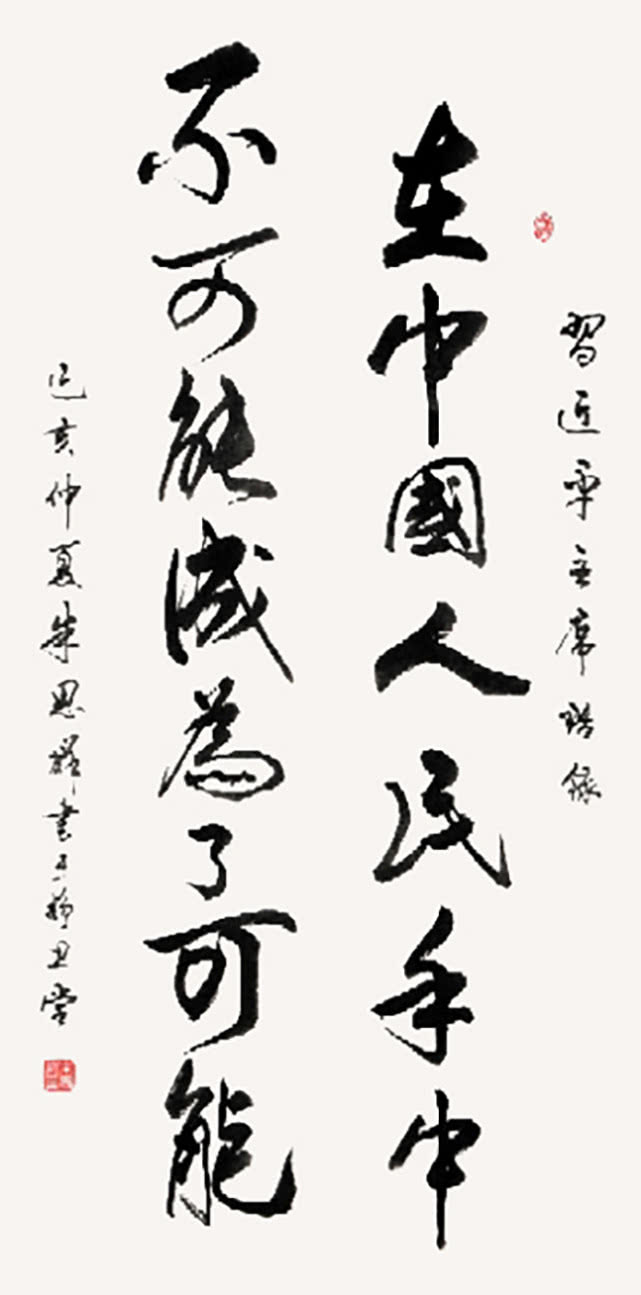 習近平主席語錄
在中國人民手中
不可能成為了可能
己亥仲夏朱恩輝書于靜思堂